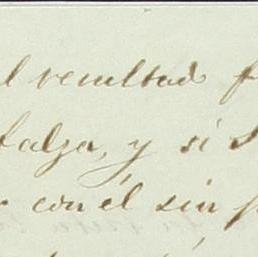 l resultado f
falza, y si s
r con él sin p